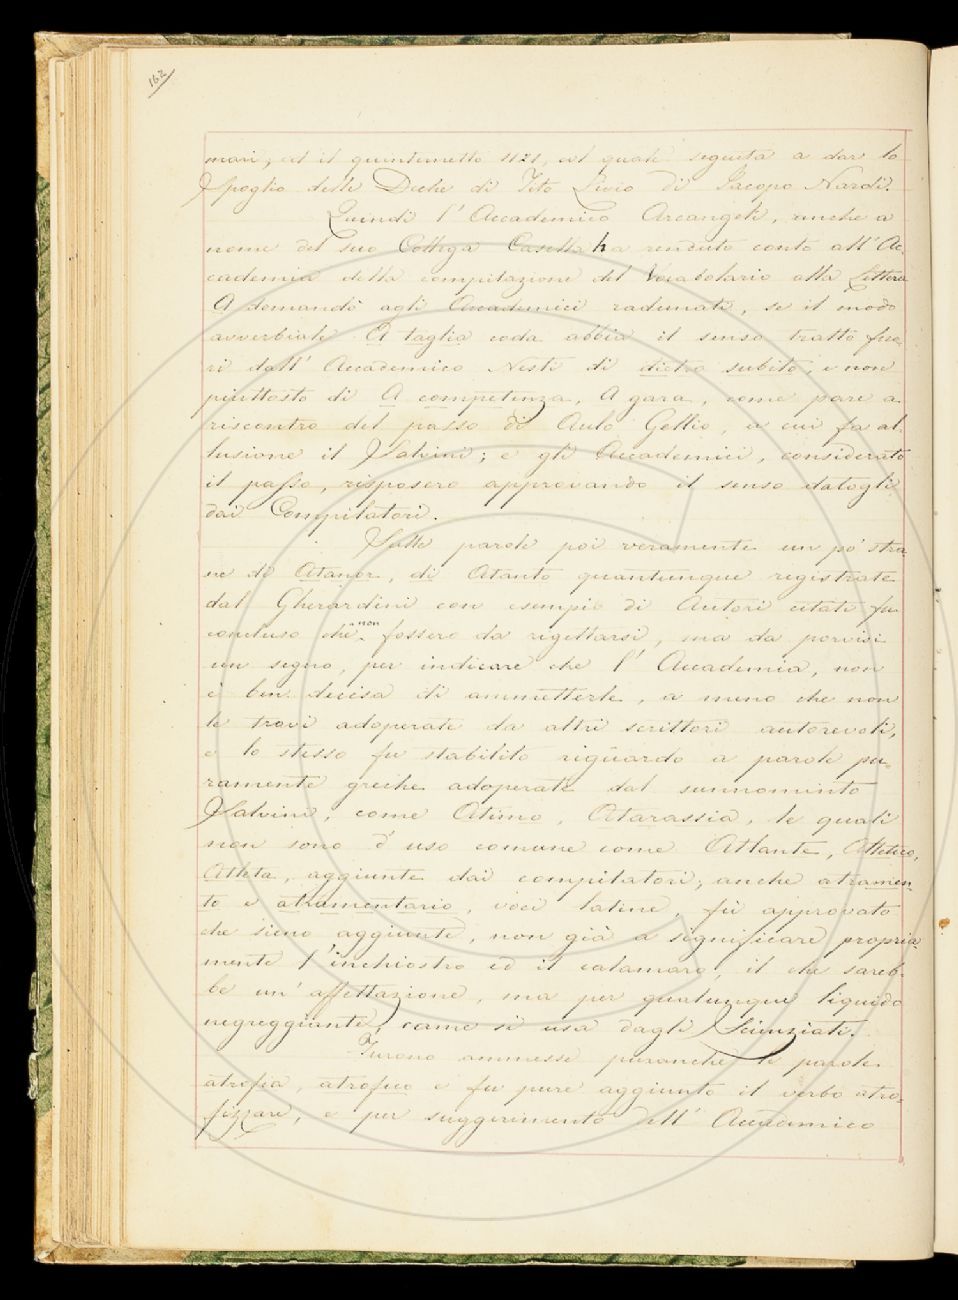 162
mari, ed il quinternetto 1121, col quale seguita a dar lo
Spoglio delle Deche di Tito Livio di Jacopo Nardi.
Quindi l'Accademico Arcangeli, anche a
nome del suo Collega Casella ha renduto conto all'Ac-
cademia della compilazione del Vocabolario alla Lettera
A domandò agli Accademici radunati, se il modo
avverbiale A taglia coda abbia il senso tratto fuo-
ri dall'Accademico Nesti di dietro subito, e non
piuttosto di A competenza, A gara, come pare a
riscontro del passo di Aulo Gellio, a cui fa al-
lusione il Salvini; e gli Accademici, considerato
il passo, risposero approvando il senso datogli
dai Compilatori.
Sulle parole poi veramente un pò stra
ne di Atanor, di Atanto quantunque registrate
dal Gherardini con esempio di Autori citati fu
concluso che non fossero da rigettarsi, ma da porvisi
un segno, per indicare che l'Accademia, non
è ben decisa di ammetterle, a meno che non
le trovi adoperate da altri scrittori autorevoli,
e lo stesso fu stabilito riguardo a parole pu-
ramente greche adoperate dal sunnominato
Salvini, come Atimo, Atarassia, le quali
non sono d'uso comune come Atlante, Atletico,
Atleta, aggiunte dai compilatori; anche atramen-
to e atramentario, voci latine, fù approvato
che sieno aggiunte, non già a significare propria-
mente l'inchiostro ed il calamaro, il che sareb-
be un'affettazione, ma per qualunque liquido
negreggiante, come si usa dagli Scienziati.
Furono ammesse puranche le parole
atrofia, atrofico e fu pure aggiunto il verbo atro-
fizzare, e per suggerimento dell'Accademico